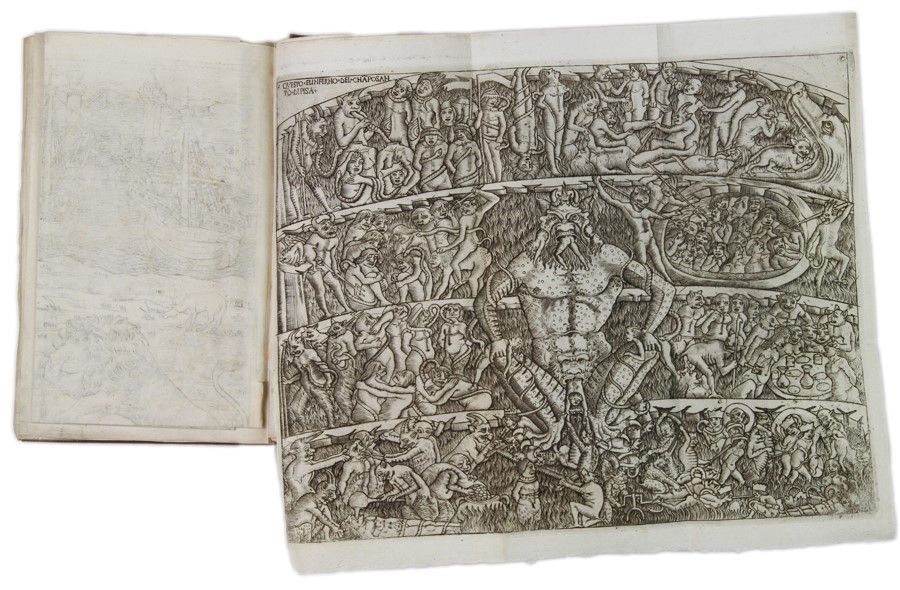 QVESTO · ELINFERNO · DEL · CHĀPOSAN
TO · DI PISA ·